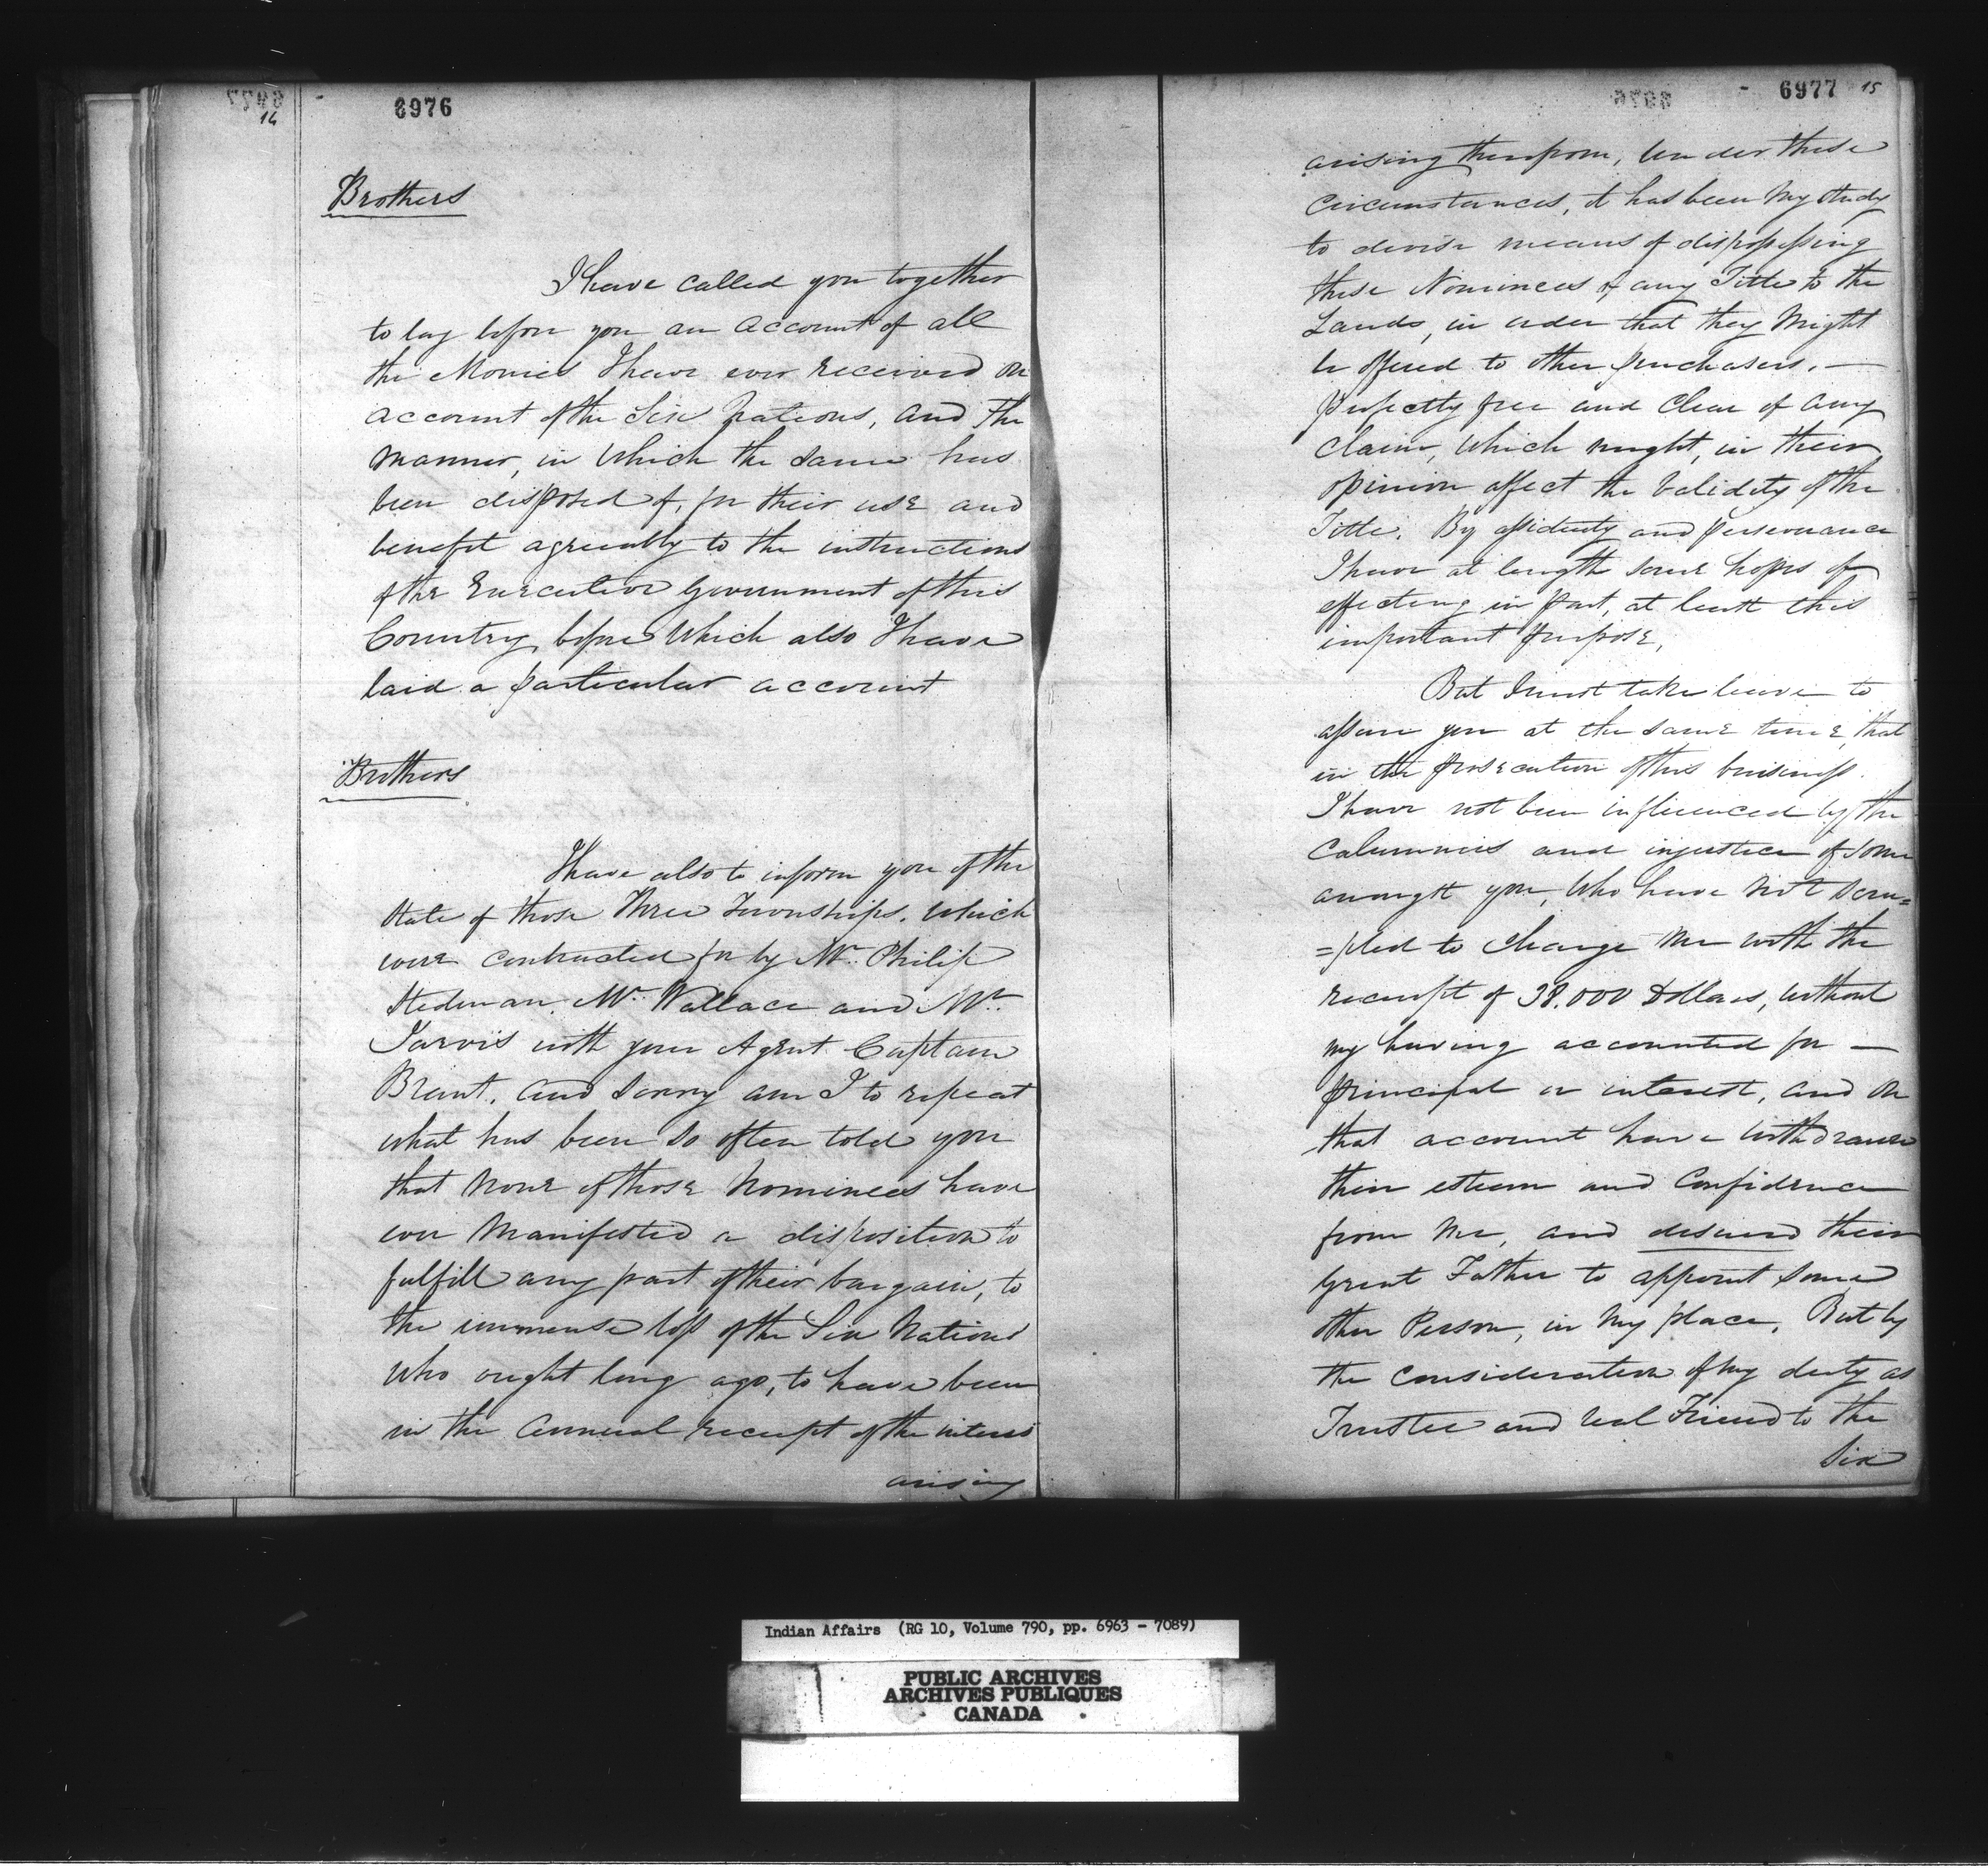 14
6976
Brothers
I have called you together
to lay before you an account of all
the Monies I have ever received on
account of the Six Nations, and the
manner, in which the same has
been disposed of, for their use and
benefit agreeably to the instructions
of the Executive Government of this
Country, before which also I have
laid a particular account
Brothers
I have also to inform you of the
state of those Three Townships. which
were contracted for by Mr. Philip
Stedman, Mr. Wallace and Mr.
Jarvis with your Agent Captain
Brant. and sorry am I to repeat
what has been so often told you
that none of those Nominees have
ever manifested a disposition to
fulfill any part of their bargain, to
the immense loss of the Six Nations
who ought long ago, to have been
in the annual receipt of the interest
arising
6977 15
arising therefrom, Under these
circumstances, it has been my study
to devise means of dispossessing
these Nominees of any Title to the
Lands, in order that they might
be offered to other purchasers. —
perfectly free and clear of any
claim, which might, in their
opinion affect the Validity of the
Title. By assiduity and perseverance
I have at length some hopes of
effecting in part, at least this
important purpose.
But I must take leave to
assure you at the same time, that
in the prosecution of this business.
I have not been influenced by the
calumnies and injustice of some
amongst you, who have not scru=
=pled to charge me with the
receipt of 38.000 Dollars, without
my having accounted for —
principal or interest, and on
that account have withdrawn
their esteem and Confidence
from me, and desired their
Great Father to appoint some
other Person, in my place. But by
the consideration of my duty as
Trustee and real Friend to the
Six
Indian Affairs (RG 10, Volume 790, pp. 6963 - 7089)
PUBLIC ARCHIVES
ARCHIVES PUBLIQUES
CANADA